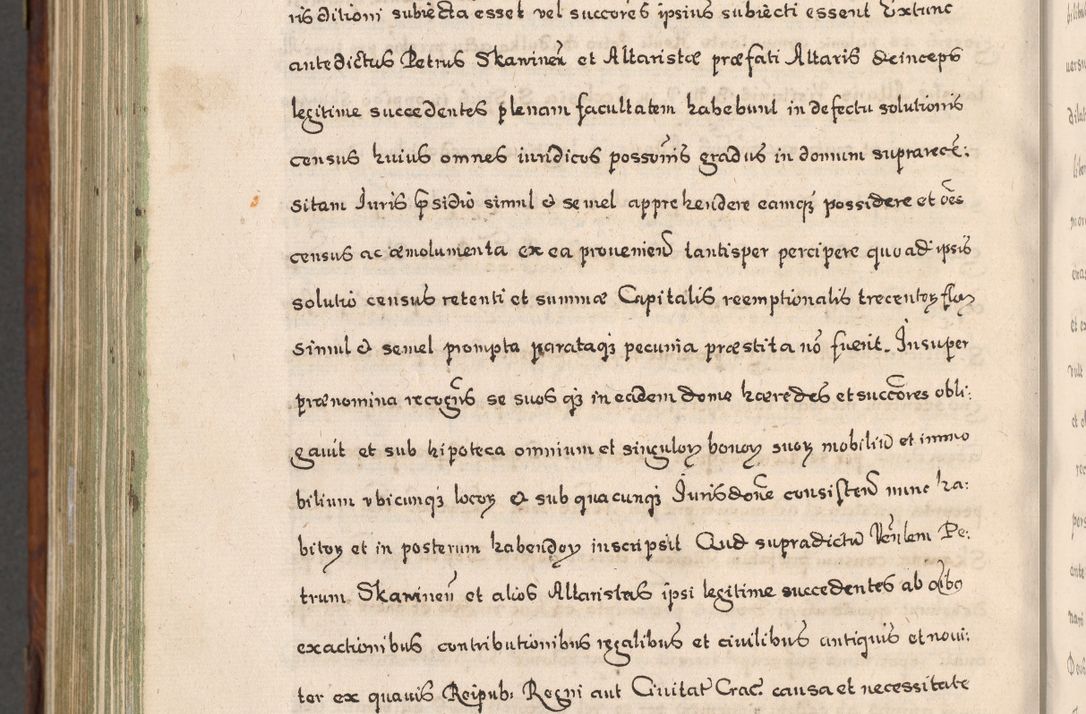 ris ditioni subiecta esset vel succores ipsius subiecti essent Extunc
antedictus Petrus Skawineñ et Altaristæ præfati Altaris deinceps
legitime succedentes plenam facultatem habebunt in defectu solutionis
census huius omnes iuridicos possoriis gradus in domum suprarecē:
sitam Iuris psidio simul & semel apprehendere eamqʒ possidere et oēs
census ac æmolumenta ex ea prouenien tantisper percipere quoad ipsis
solutio census retenti et summæ Capitalis reemptionalis trecentoꝝ floꝝ
simul & semel prompta parataqʒ pecunia præstita nō fuerit. Insuper
prænomina recogñs se suos qʒ in eadem domo hæredes et succōres obli:
gauit et sub hipoteca omnium et singuloꝝ bonoꝝ suoꝝ mobiliū et immo
bilium vbicunqʒ locoꝝ & sub quacunqʒ Iurisdōne consisten nunc ha:
bitoꝝ et in posterum habendoꝝ inscripsit Quod supradictū Veñlem Pe:
trum Skawineñ et alios Altaristas ipsi legitime succedentes ab oībʒ
exactionibus contributionibus regalibus et ciuilibus antiquis et noui:
ter ex quauis Reipub: Regni aut Ciuitat Crac. causa et necessitate